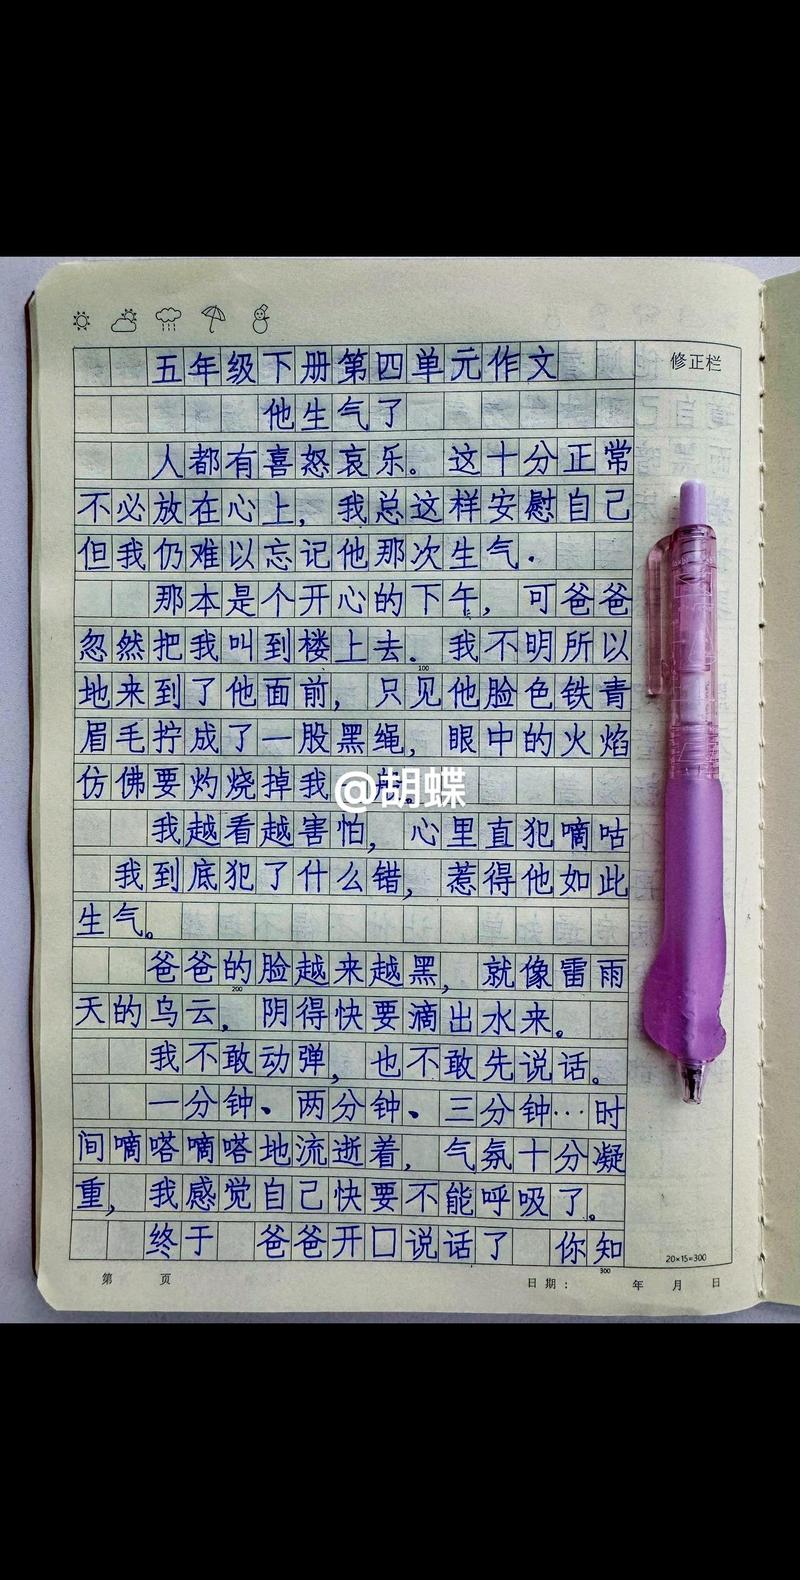 五年级下册第四单元作文
修正栏
他生气了
人都有喜怒哀乐。这十分正常
不必放在心上，我总这样安慰自己
但我仍难以忘记他那次生气.
那本是个开心的下午，可爸爸
忽然把我叫到楼上去。我不明所以
100
地来到了他面前，只见他脸色铁青
眉毛拧成了一股黑绳，眼中的火焰
仿佛要灼烧掉我
@胡蝶
我越看越害怕，心里直犯嘀咕
我到底犯了什么错，惹得他如此
生气。
爸爸的脸越来越黑，就像雷雨
200
天的乌云，阴得快要滴出水来。
我不敢动弹，也不敢先说话。
一分钟、两分钟、三分钟…时
间嘀嗒嘀嗒地流逝着，气氛十分凝
重，我感觉自己快要不能呼吸了。
终于 爸爸开口说话了 你知
20×15=300
300
第 页 日期： 年 月 日